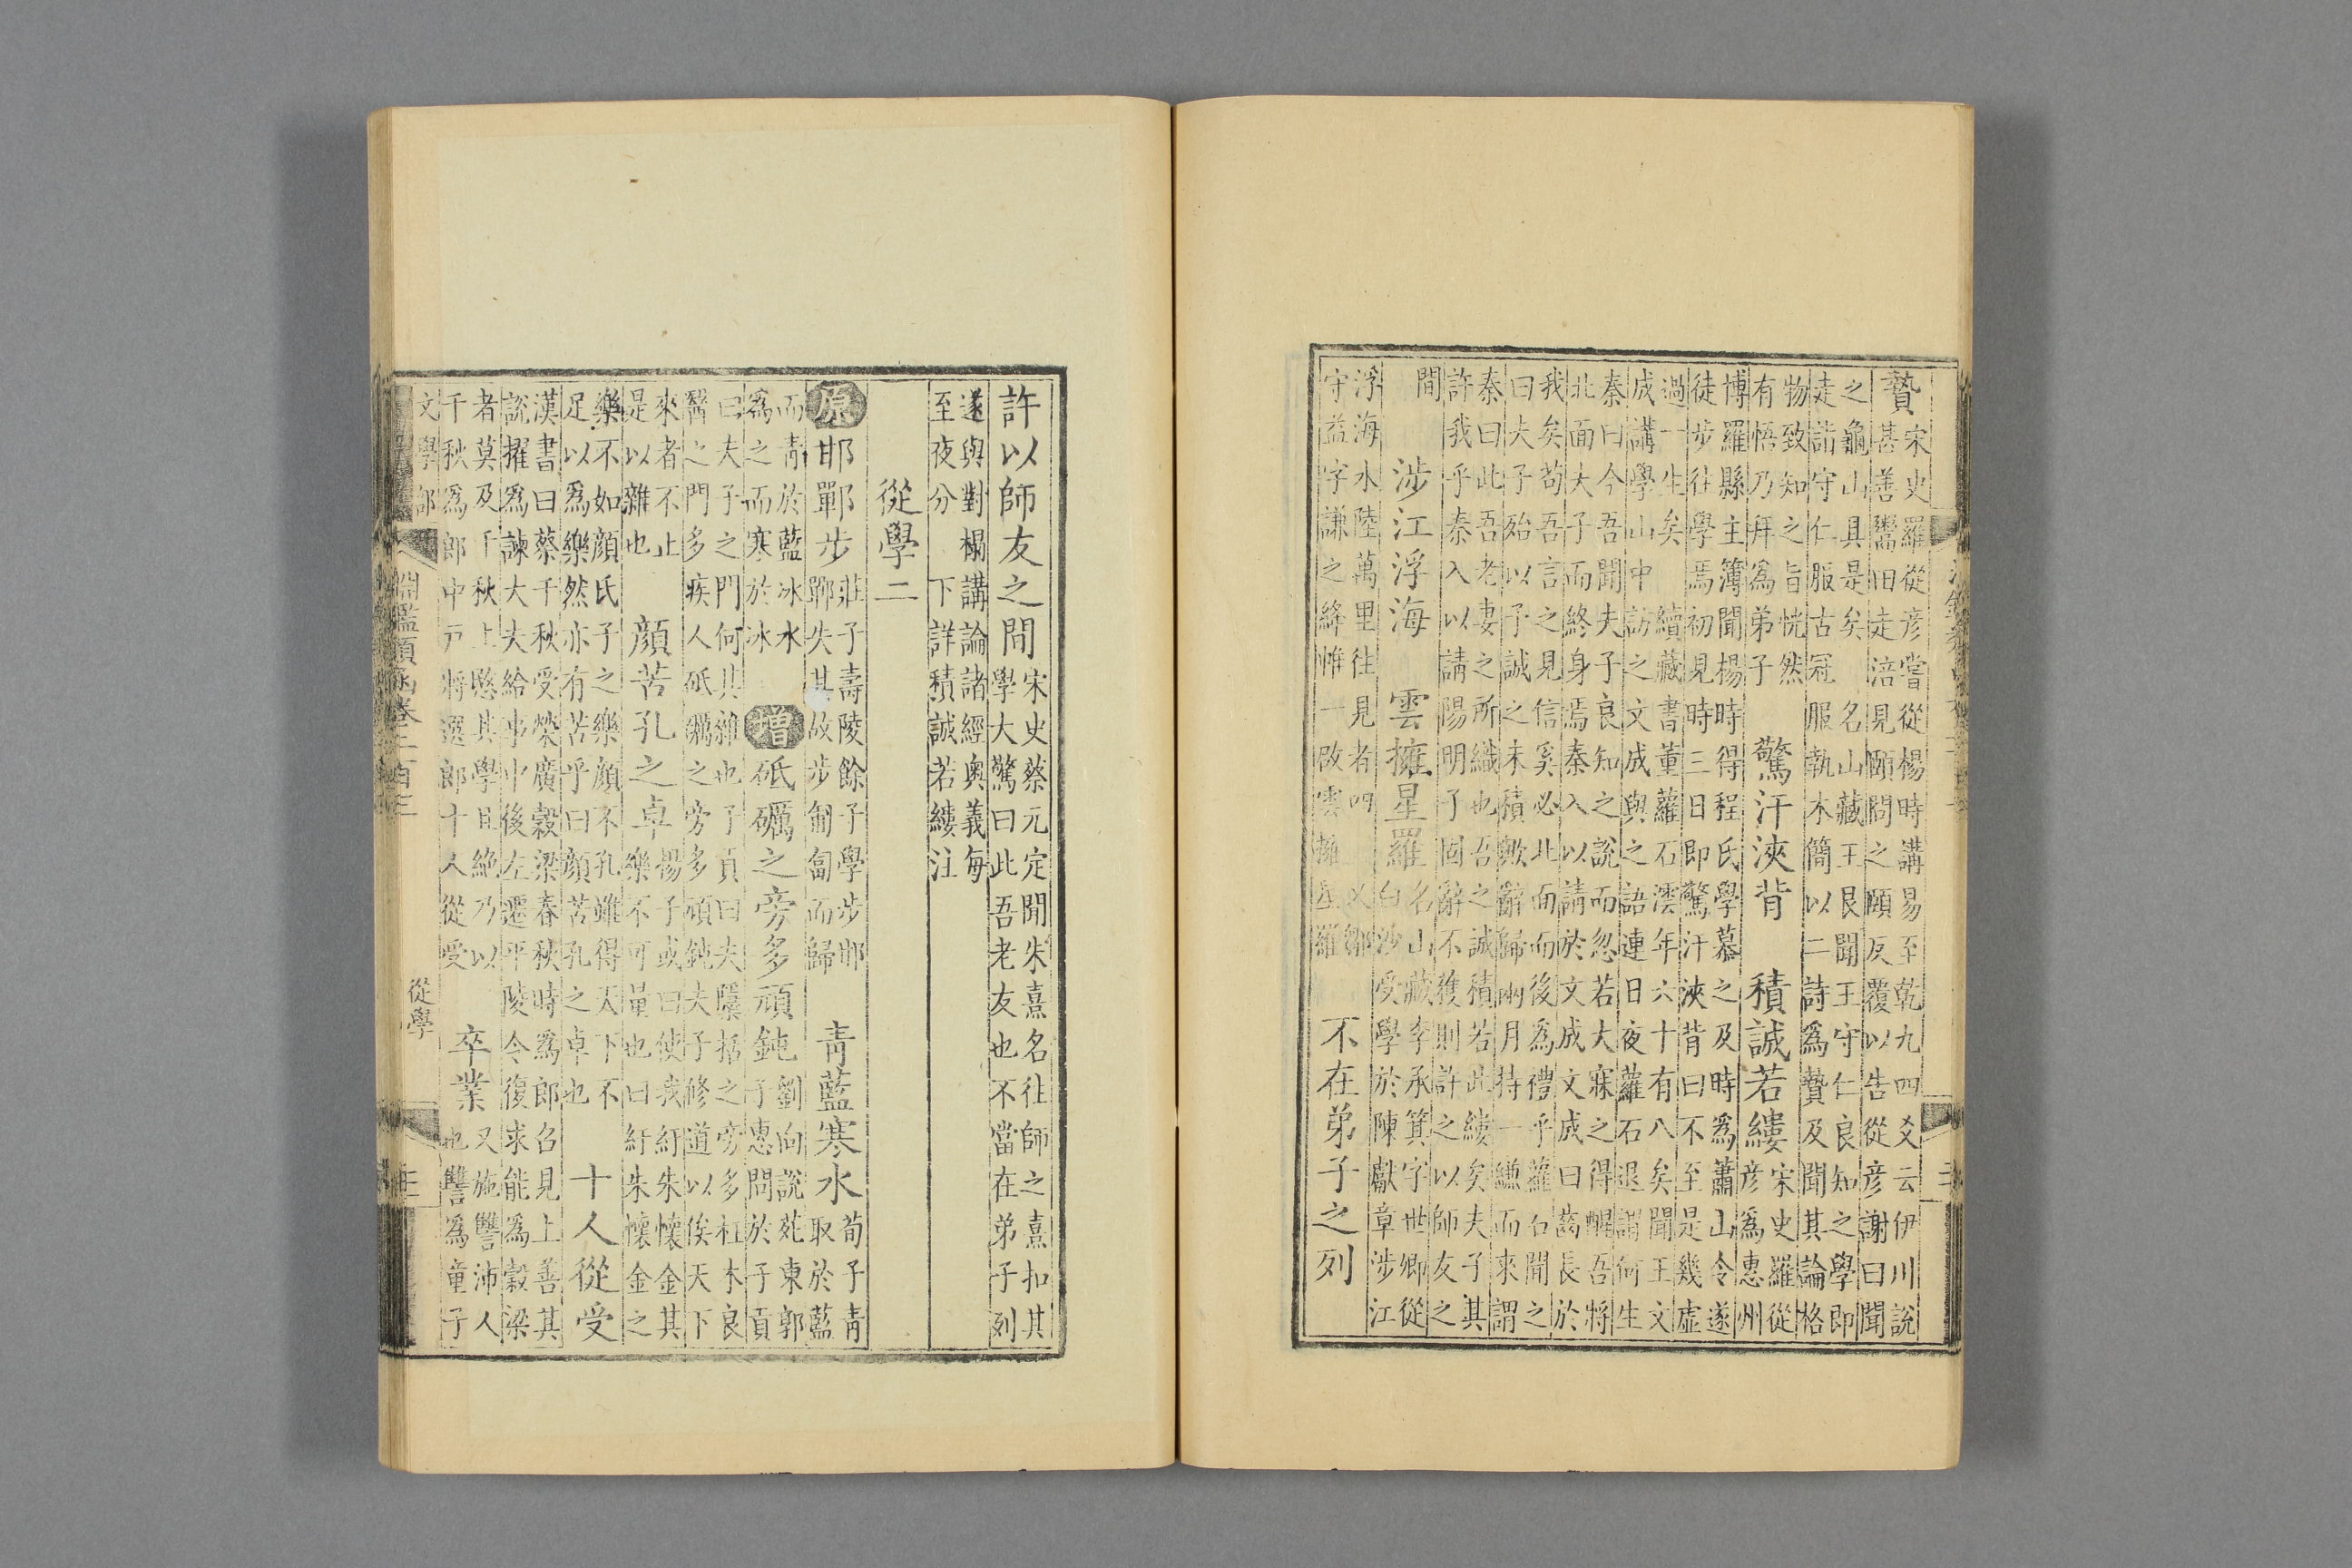 贄
宋史羅從彥嘗從楊時講易至乾九四爻云伊川說
甚善鬻田走洛見頤問之頤反覆以告從彥謝曰聞
之龜山具是矣 名山藏王艮聞王守仁良知之學即
走詣守仁服古冠服執木簡以二詩爲贄及聞其論格
物致知之旨恍然
有悟乃拜爲弟子
驚汗浹背 積誠若縷
宋史羅從
彥爲惠州
博羅縣主簿聞楊時得程氏學慕之及時爲蕭山令遂
徒步往學焉初見時三日即驚汗浹背曰不至是幾虛
過一生矣 續藏書董蘿石澐年六十有八矣聞王文
成講學山中訪之文成與之語連日夜蘿石退謂何生
秦曰今吾聞夫子良知之說而忽若大寐之得醒吾將
北面夫子而終身焉秦入以請於文成文成曰齒長於
我矣苟吾言之見信奚必北面而後爲禮乎蘿石聞之
曰夫子殆以予誠之未積歟辭歸兩月持一縑而來謂
秦曰此吾老妻之所織也吾之誠積若此縷矣夫子其
許我乎秦入以請陽明子固辭不獲則許之以師友之
間
涉江浮海 雲擁星羅
名山藏李承箕字世卿從
白沙受學於陳獻章涉江
浮海水陸萬里往見者四 又鄒
守益字謙之絳帷一啟雲擁星羅
不在弟子之列
許以師友之間
宋史蔡元定聞朱熹名往師之熹扣其
學大驚曰此吾老友也不當在弟子列
遂與對榻講論諸經奧義每
至夜分 下詳積誠若縷注
從學二
原 邯鄲步
莊子壽陵餘子學步邯
鄲失其故步匍匐而歸
青藍寒水
荀子青
取於藍
而青於藍冰水
爲之而寒於冰
增 砥礪之旁多頑鈍
劉向說苑東郭
子惠問於子貢
曰夫子之門何其雜也子貢曰夫隱括之旁多枉木良
醫之門多疾人砥礪之旁多頑鈍夫子修道以俟天下
來者不止
是以雜也
顏苦孔之卓
楊子或曰使我紆朱懷金其
樂不可量也曰紆朱懷金之
樂不如顏氏子之樂顏不孔雖得天下不
足以爲樂然亦有苦乎曰顏苦孔之卓也
十人從受
漢書曰蔡千秋受榮廣穀梁春秋時爲郎召見上善其
說擢爲諫大夫給事中後左遷平陵令復求能爲穀梁
者莫及千秋上愍其學且絕乃以
千秋爲郎中戶將選郎十人從受
卒業
又施讐沛人
也讐爲童子
文學部
淵鑑類函卷二百三
從學